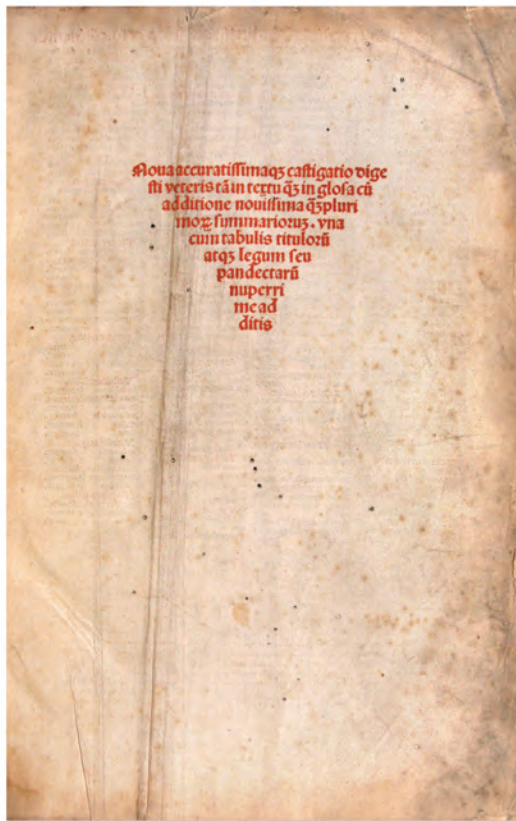 Noua accuratissimaqꝫ castigatio dige
sti veteris tā in textu qꝫ̃ in glosa cū
additione nouissima qꝫ̃pluri
moꝝ summarioruꝫ. vna
cum tabulis titulorū
atqꝫ legum seu
pandectarū
nuperri
me ad
ditis